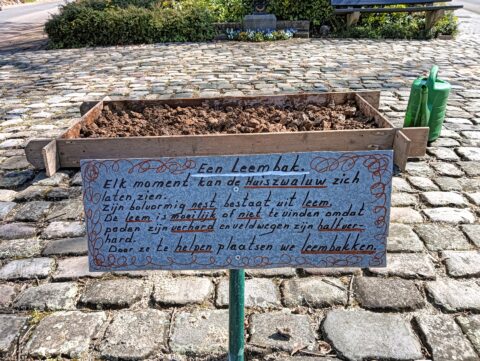 Een Leembak.
Elk moment kan de Huiszwaluw zich
laten zien.
Zijn bolvormig nest bestaat uit leem.
De leem is moeilijk of niet te vinden omdat
paden zijn verhard en veldwegen zijn half ver-
hard.
Door ze te helpen plaatsen we leembakken.